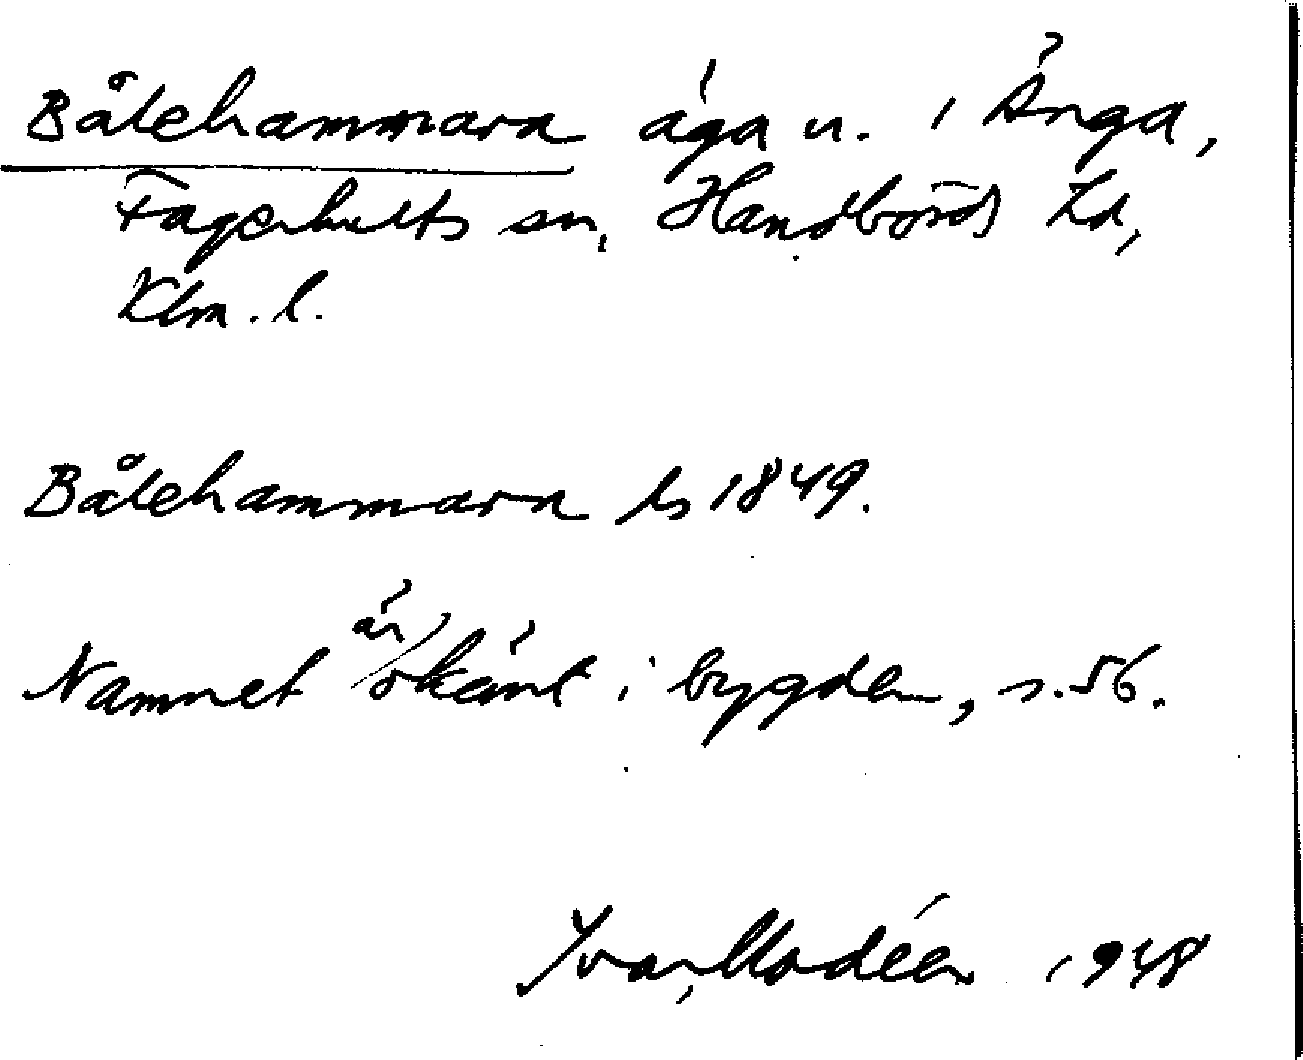 Båtehammara äga u. i Änga,
Fagerhults sn, Handbörds hd,
Klm. l.
Båtehammara ls 1849.
Namnet är okänt i bygden, s. 56.
Ivar Modéer 1948